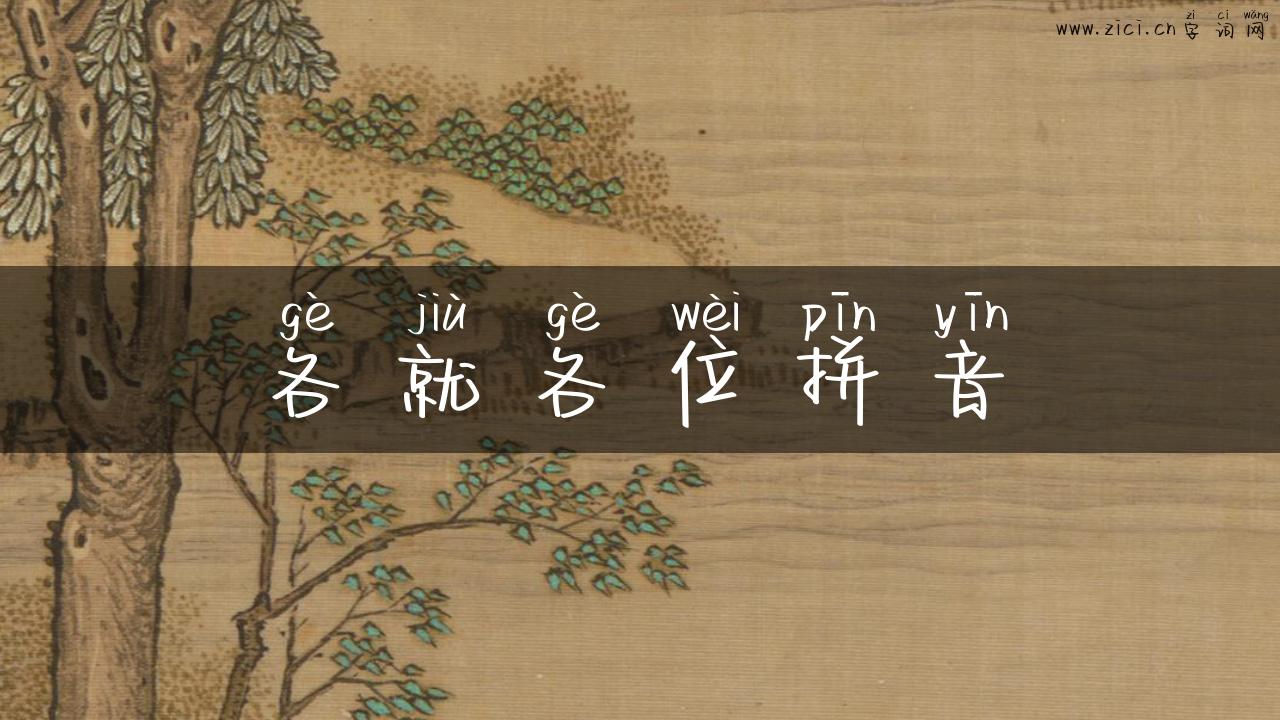 zì cí wǎng
www.zici.cn 字 词 网
gè jiù gè wèi pīn yīn
各 就 各 位 拼 音